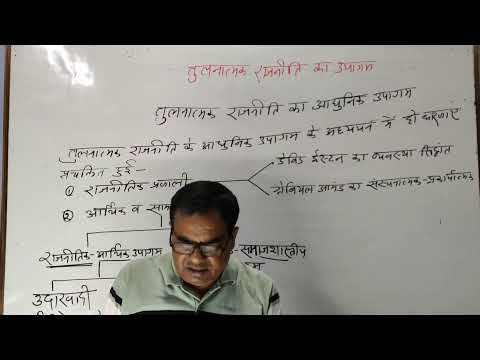 तुलनात्मक राजनीति का उपागम
तुलनात्मक राजनीति का आधुनिक उपागम
तुलनात्मक राजनीति के आधुनिक उपागम के अध्ययन में दो धाराएं
प्रचलित हुई:-
① राजनीतिक प्रणाली
डेविड ईस्टन का व्यवस्था सिद्धांत
ग्रेब्रियल आमंड का संरचनात्मक-प्रकार्यात्मक
② आर्थिक व साम
राजनीतिक-आर्थिक उपागम
-समाजशास्त्रीय
उदारवादी